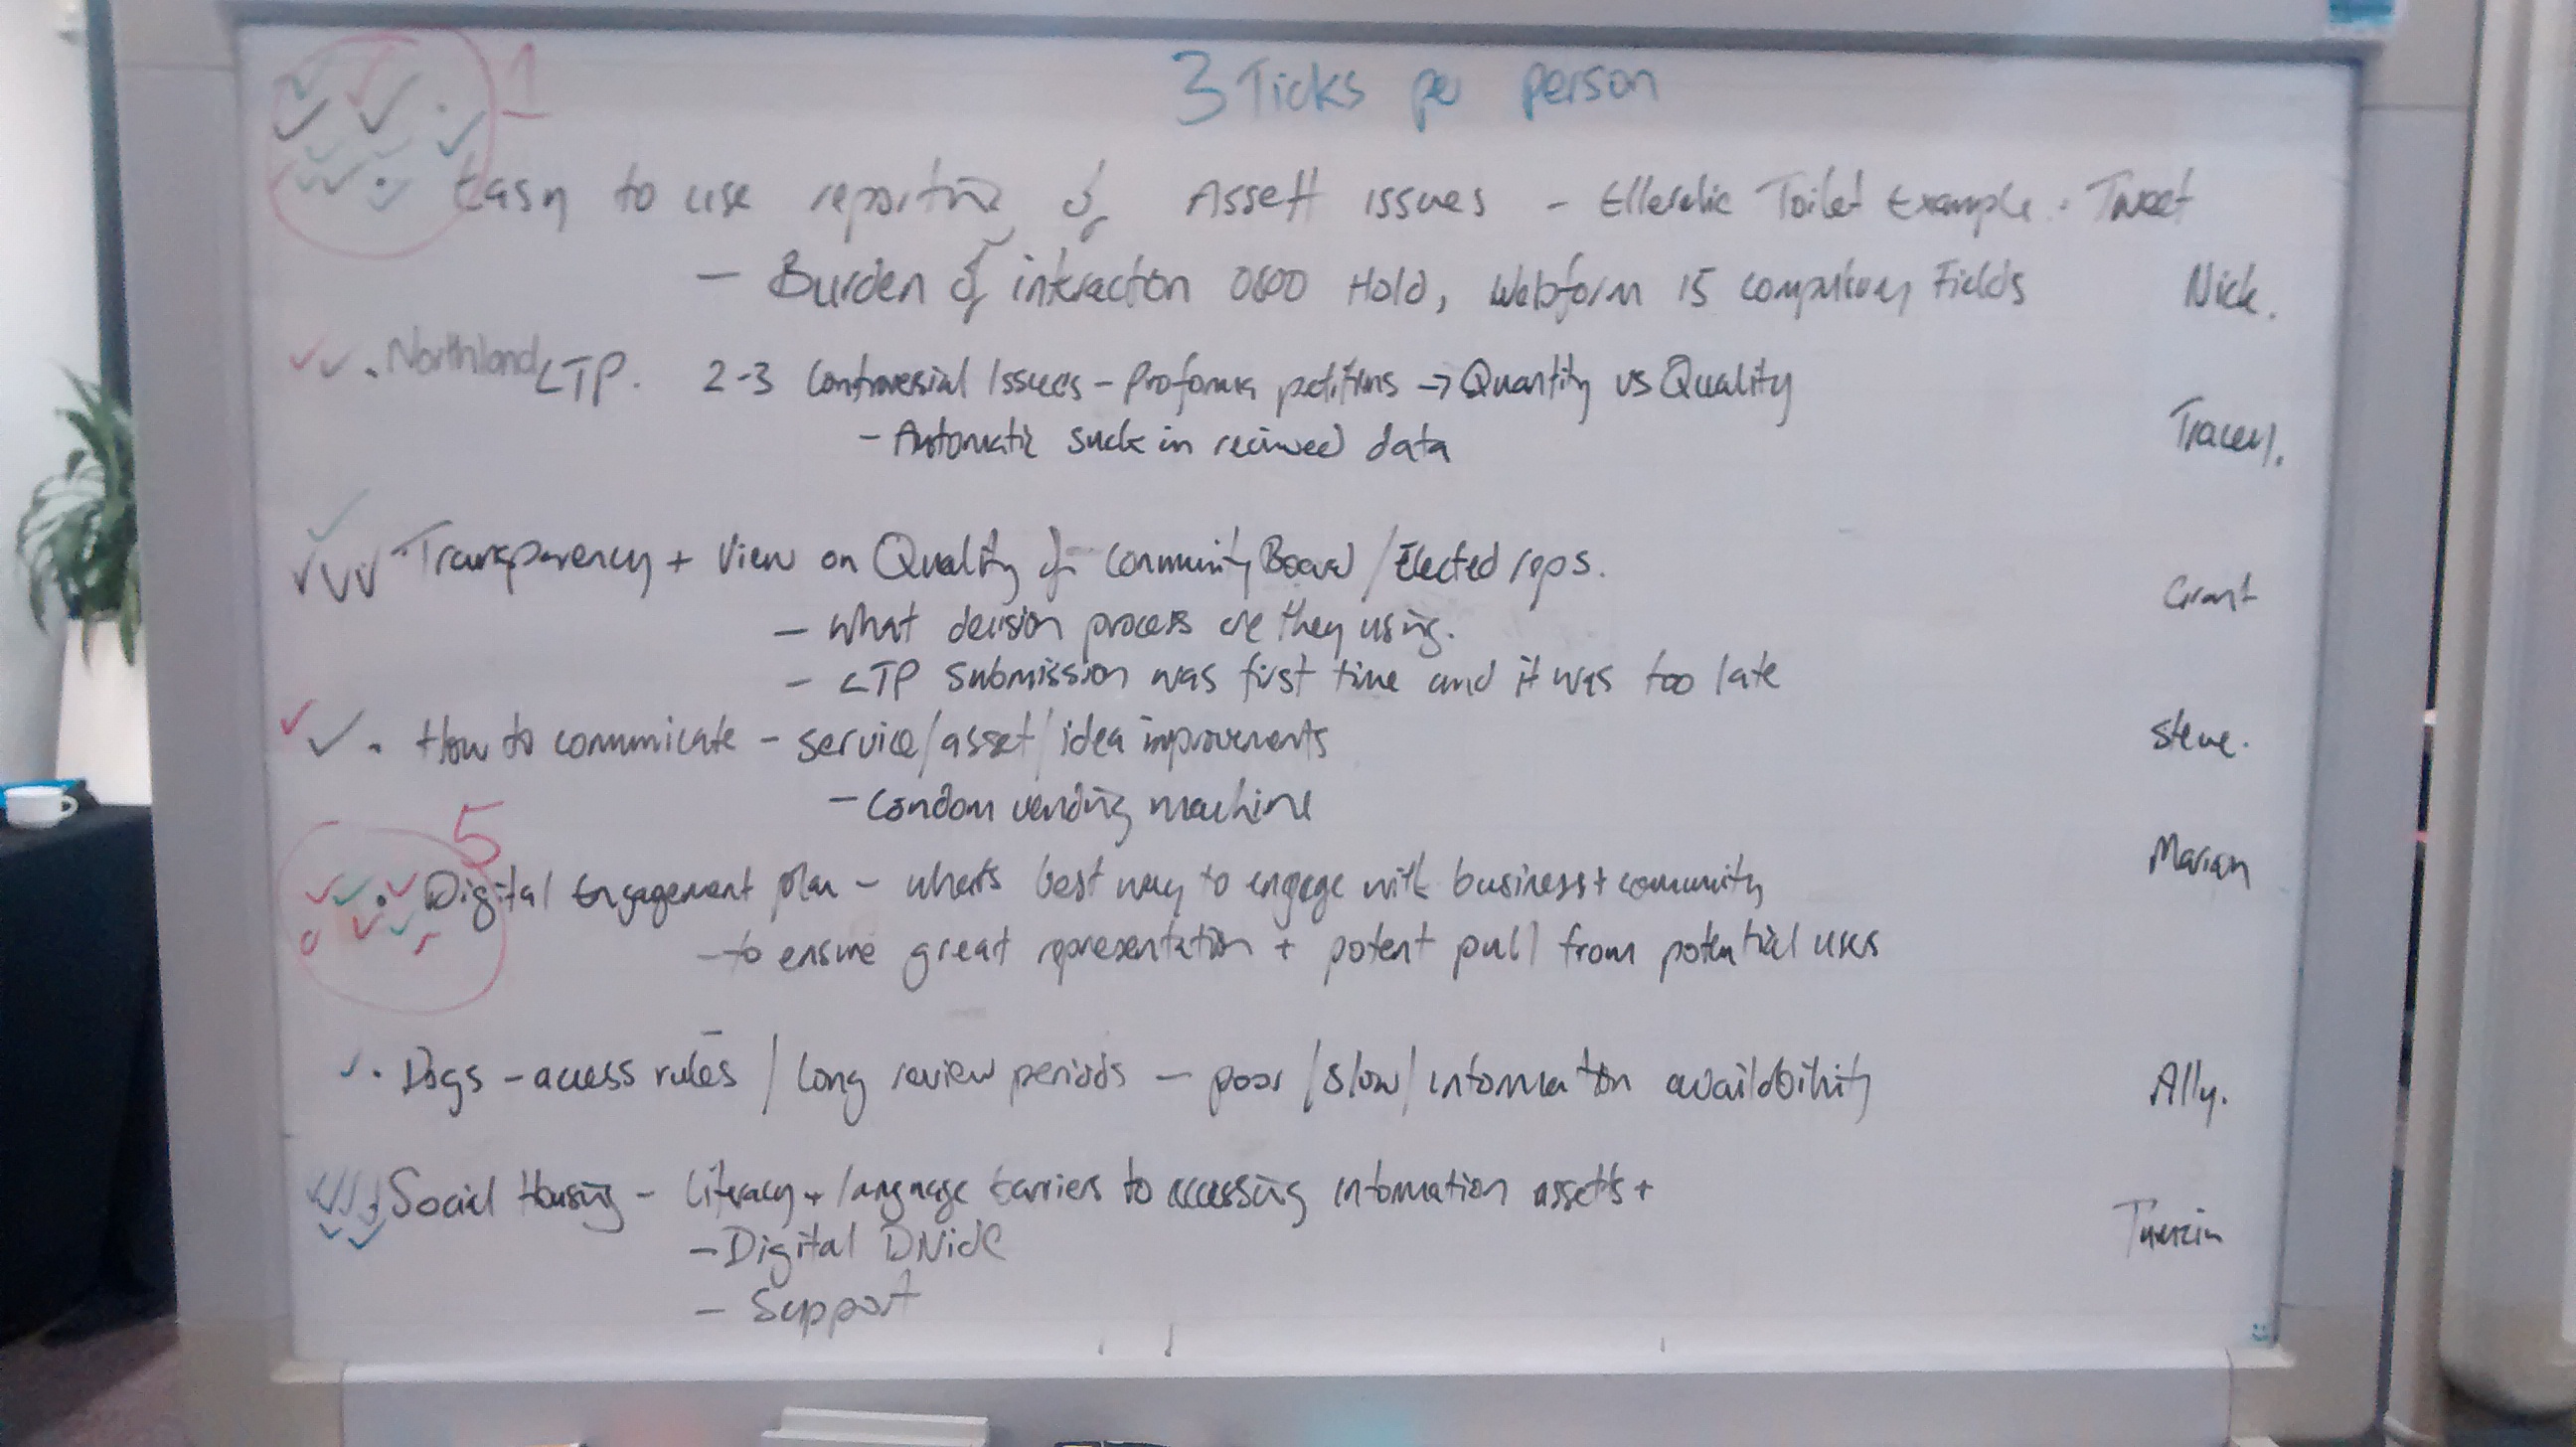 1
3 Ticks per person
Easy to use reporting of Assett issues - Ellerslie Toilet Example. Tweet
- Burden of interaction 0800 Hold, Webform 15 compulsory Fields Nick.
Northland LTP. 2-3 Controversial Issues - Proforma petitions → Quantity vs Quality
- Automatic suck in recieved data Tracey.
Transparency + View on Quality of Community Board / Elected reps.
- what decision process are they using. Grant
- LTP submission was first time and it was too late
How to communicate - service/asset/idea improvements Steve.
- Condom vending machine
5
Digital Engagement plan - what's best way to engage with business + community Marian
- to ensure great representation + potent pull from potential users
Dogs - access rules / Long review periods - poor /slow/ information availability Ally.
Social Housing - Literacy + language barriers to accessing information assetts +
- Digital Divide
- Support